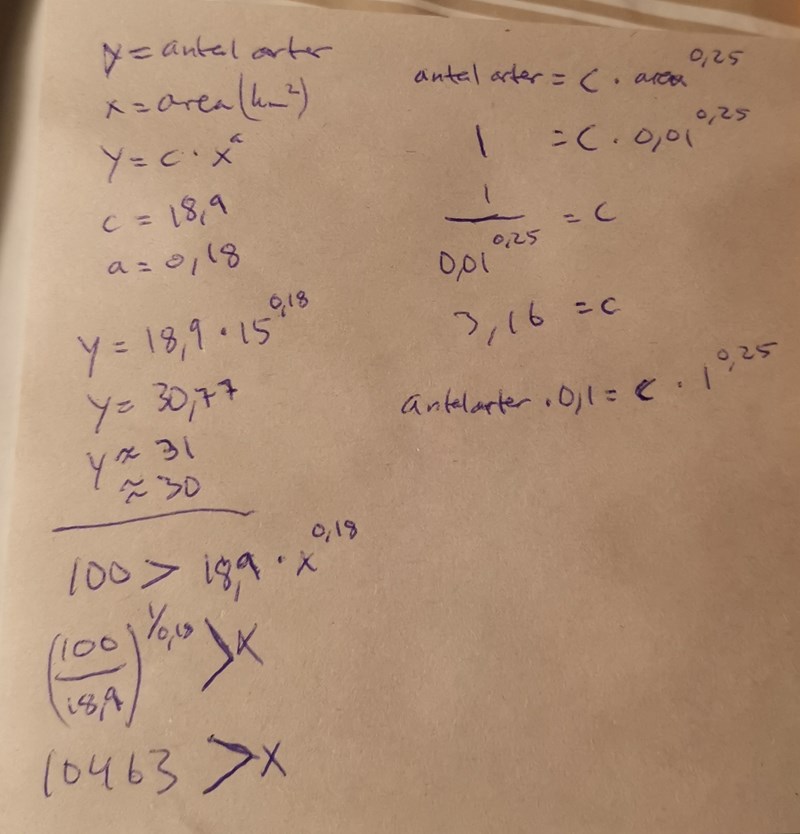 y = antal arter
x = area (km²)
y = c · x^a
c = 18,9
a = 0,18
y = 18,9 · 15^0,18
y = 30,77
y ≈ 31
≈ 30
100 > 18,9 · x^0,18
(100/18,9)^1/0,18 > x
10463 > x
antal arter = c · area^0,25
1 = c · 0,01^0,25
1/0,01^0,25 = c
3,16 = c
antal arter · 0,1 = c · 1^0,25